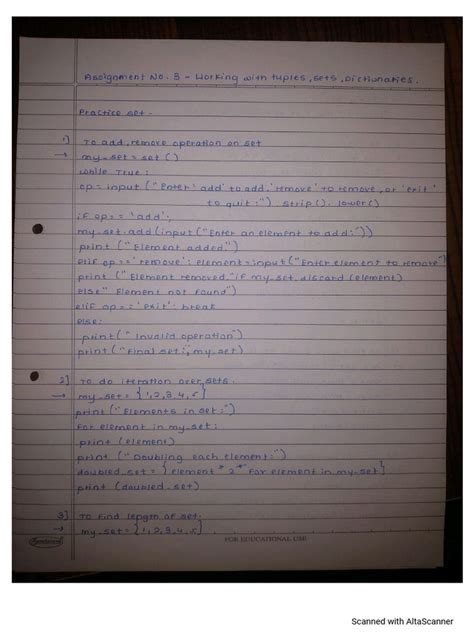 Assignment No. 3 - Working with tuples, sets, Dictionaries.
Practice set.
1] To add, remove operation on set
→ my_set = set ()
while True:
op = input ("Enter 'add' to add, 'remove' to remove, or 'exit'
to quit:") strip(). lower()
if op == 'add':
my_set.add (input ("Enter an element to add:"))
print ("Element added.")
elif op == 'remove': element = input ("Enter element to remove")
print ("Element removed." if my_set.discard (element)
else "Element not found")
elif op == 'exit': break
else:
print ("Invalid operation")
print ("Final set:", my_set)
2] To do iteration over sets.
→ my_set = {1,2,3,4,5}
print ("Elements in set:")
for element in my_set:
print (element)
print ("Doubling each element:")
doubled_set = {element * 2 for element in my_set}
print (doubled_set)
3] To find length of set.
→ my_set = {1,2,3,4,5}
FOR EDUCATIONAL USE
Scanned with AltaScanner